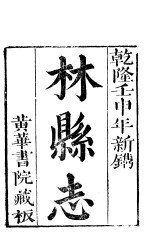 乾隆壬申年新鐫
林縣志
黃華書院藏板